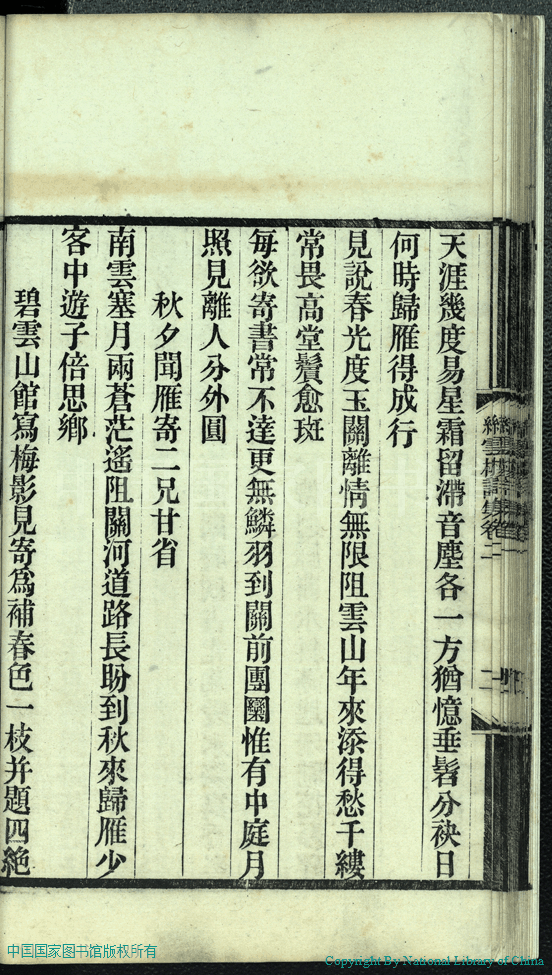 天涯幾度易星霜留滯音塵各一方猶憶垂髫分袂日
何時歸雁得成行
見說春光度玉關離情無限阻雲山年來添得愁千縷
常畏高堂鬢愈斑
每欲寄書常不達更無鱗羽到關前團圞惟有中庭月
照見離人分外圓
秋夕聞雁寄二兄甘省
南雲塞月兩蒼茫遙阻關河道路長盼到秋來歸雁少
客中遊子倍思鄉
碧雲山館寫梅影見寄爲補春色一枝并題四絶
中国国家图书馆版权所有
Copyright By National Library of China